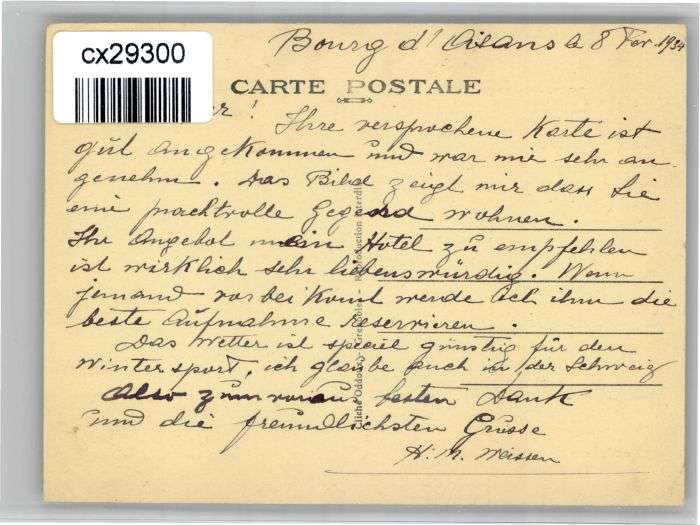 cx29300
Bourg d' Oisans le 8 Fev. 1934
CARTE POSTALE
! Ihre versprochene Karte ist
gut angekommen und war mir sehr an-
genehm. Das Bild zeigt mir dass Sie
eine prachtvolle Gegend wohnen.
Ihr Angebot mein Hotel zu empfehlen
ist wirklich sehr liebenswürdig. Wenn
jemand vorbei komt werde ich ihm die
beste Aufnahme reservieren.
Das Wetter ist speciel günstig für den
Wintersport, ich glaube auch in der Schweiz
Also zum voraus besten Dank
und die freundlichsten Grüsse
H. M. Meissen
Cliché Oddoux, Grenoble Reproduction interdite